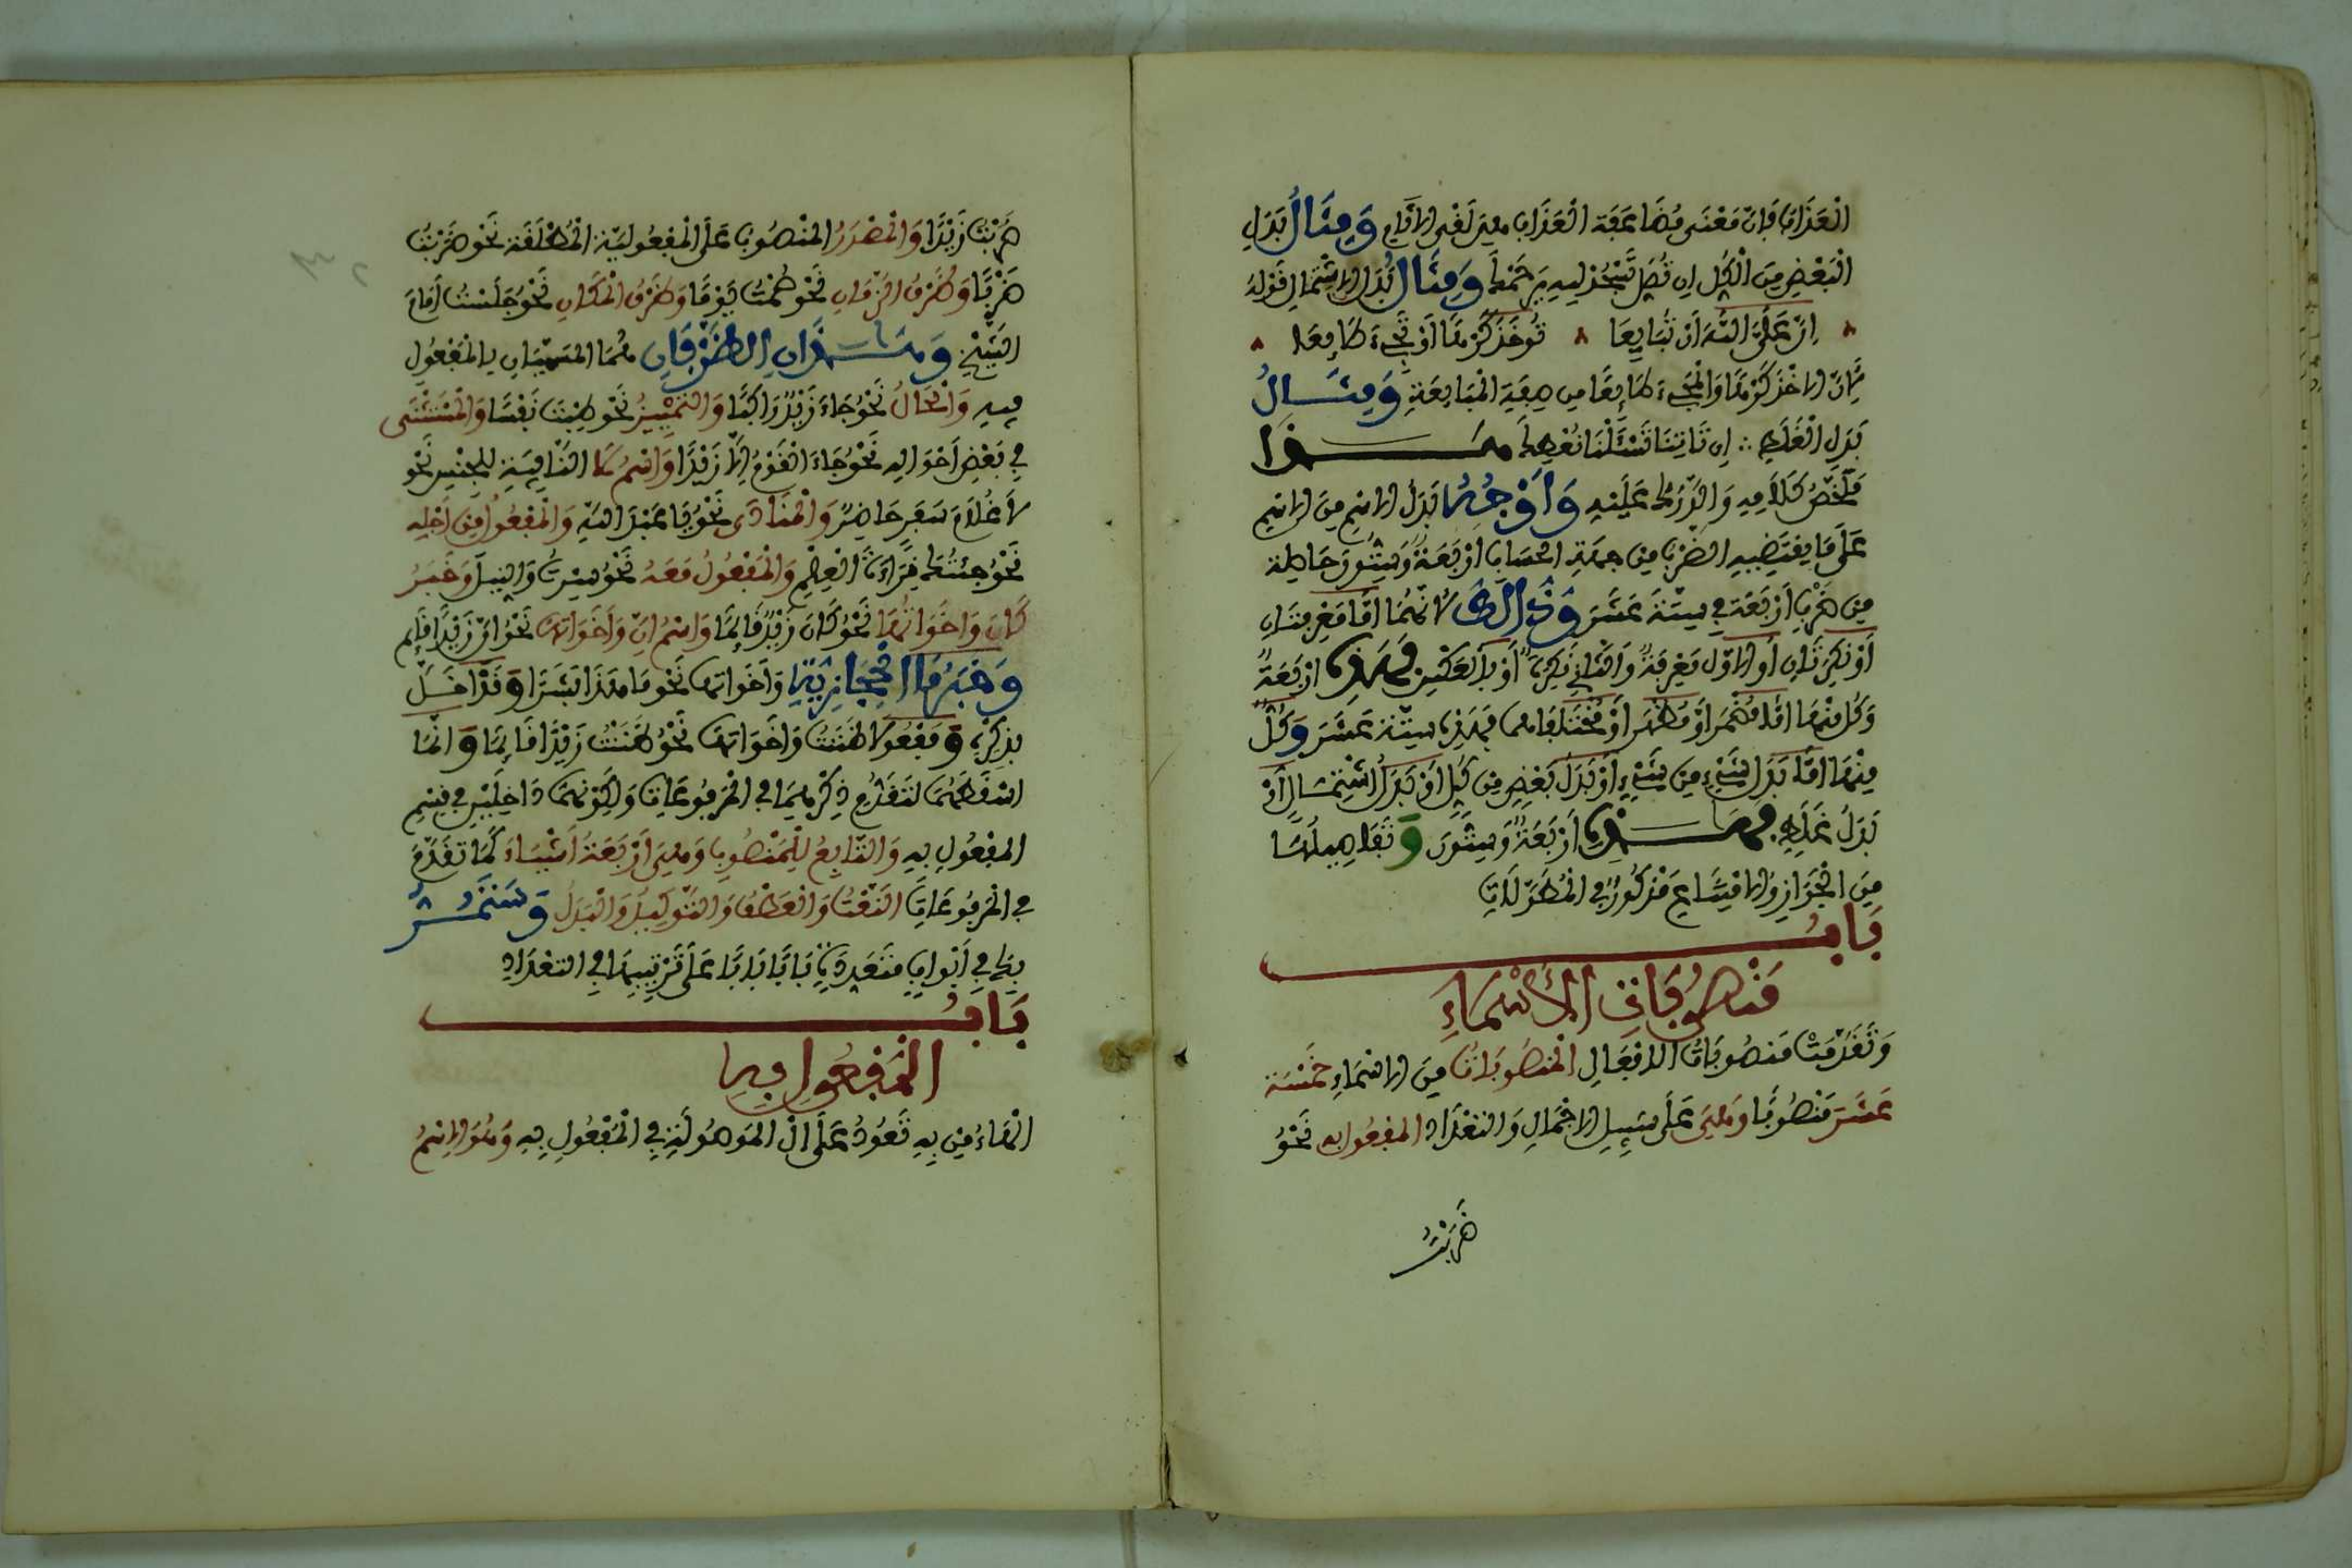 الْعَذَابُ فَإِنَّ مَعْنَى مُضَاعَفَةِ الْعَذَابِ هِيَ لَقْيُ الْأَثَامِ وَمِثَالُ بَدَلِ
الْبَعْضِ مِنَ الْكُلِّ إِنْ تُصَلِّ تَسْجُدْ لِلَّهِ يَرْحَمْكَ وَمِثَالُ بَدَلِ الْاِشْتِمَالِ قَوْلُهُ
إِنَّ عَلَيَّ اللَّهَ أَنْ تُبَايِعَا تُؤْخَذَ كَرْهًا أَوْ تَجِيءَ طَائِعَا
لِأَنَّ الْأَخْذَ كَرْهًا وَالْمَجِيءَ طَائِعًا مِنْ صِفَةِ الْمُبَايَعَةِ وَمِثَالُ
بَدَلِ الْغَلَطِ إِنْ تَأْتِنَا تَسْأَلْنَا نُعْطِكَ هَذَا
مُلَخَّصُ كَلَامِهِ وَالدَّرْكُ عَلَيْهِ وَأَوْجُهُ بَدَلِ الْاِسْمِ مِنَ الْاِسْمِ
عَلَى مَا يَقْتَضِيهِ الضَّرْبُ مِنْ جِهَةِ الْحِسَابِ أَرْبَعَةٌ وَسِتُّونَ حَاصِلَة
مِنْ ضَرْبِ أَرْبَعَةٍ فِي سِتَّةَ عَشَرَ وَذَلِكَ لِأَنَّهُمَا إِمَّا مَعْرِفَتَانِ
أَوْ نَكِرَتَانِ أَوِ الْأَوَّلُ مَعْرِفَةٌ وَالثَّانِي نَكِرَةٌ أَوْ بِالْعَكْسِ فَهَذِهِ أَرْبَعَةٌ
وَكُلٌّ مِنْهُمَا إِمَّا مُضْمَرٌ أَوْ مُظْهَرٌ أَوْ مُخْتَلِفَا فَهَذِهِ سِتَّةَ عَشَرَ وَكُلٌّ
مِنْهَا إِمَّا بَدَلُ شَيْءٍ مِنْ شَيْءٍ أَوْ بَدَلُ بَعْضٍ مِنْ كُلٍّ أَوْ بَدَلُ اشْتِمَالٍ أَوْ
بَدَلُ غَلَطٍ فَهَذِهِ أَرْبَعَةٌ وَسِتُّونَ وَتَفَاصِيلُهَا
مِنَ الْجَوَازِ وَالْاِمْتِنَاعِ مَذْكُورٌ فِي الْمُطَوَّلَاتِ
بَابُ
مَنْصُوبَاتِ الْأَسْمَاءِ
وَتَقَدَّمَتْ مَنْصُوبَاتُ الْأَفْعَالِ الْمَنْصُوبَاتُ مِنَ الْأَسْمَاءِ خَمْسَةَ
عَشَرَ مَنْصُوبًا وَهِيَ عَلَى سَبِيلِ الْإِجْمَالِ وَالتَّعْدَادِ الْمَفْعُولُ بِهِ نَحْوُ
ضَرَبْتُ
ضَرَبْتُ زَيْدًا وَالْمَصْدَرُ الْمَنْصُوبُ عَلَى الْمَفْعُولِيَّةِ الْمُطْلَقَةِ نَحْوُ ضَرَبْتُ
ضَرْبًا وَظَرْفُ الزَّمَانِ نَحْوُ صُمْتُ يَوْمًا وَظَرْفُ الْمَكَانِ نَحْوُ جَلَسْتُ أَمَامَ
الشَّيْخِ وَهَذَانِ الظَّرْفَانِ هُمَا الْمُسَمَّيَانِ بِالْمَفْعُولِ
فِيهِ وَالْحَالُ نَحْوُ جَاءَ زَيْدٌ رَاكِبًا وَالتَّمْيِيزُ نَحْوُ طِبْتَ نَفْسًا وَالْمُسْتَثْنَى
فِي بَعْضِ أَحْوَالِهِ نَحْوُ جَاءَ الْقَوْمُ إِلَّا زَيْدًا وَاسْمُ لَا النَّافِيَةِ لِلْجِنْسِ نَحْوُ
لَا غُلَامَ سَفَرٍ حَاضِرٌ وَالْمُنَادَى نَحْوُ يَا عَبْدَ اللَّهِ وَالْمَفْعُولُ مِنْ أَجْلِهِ
نَحْوُ جِئْتُكَ قِرَاءَةَ الْعِلْمِ وَالْمَفْعُولُ مَعَهُ نَحْوُ سِرْتُ وَالنِّيلَ وَخَبَرُ
كَانَ وَأَخَوَاتِهَا نَحْوُ كَانَ زَيْدٌ قَائِمًا وَاسْمُ إِنَّ وَأَخَوَاتِهَا نَحْوُ إِنَّ زَيْدًا قَائِم
وَخَبَرُ مَا الْحِجَازِيَّةِ وَأَخَوَاتِهَا نَحْوُ مَا هَذَا بَشَرًا وَقَدْ أَخَلَّ
بِذِكْرِهِ وَمَفْعُولَا ظَنَنْتُ وَأَخَوَاتِهَا نَحْوُ ظَنَنْتُ زَيْدًا قَائِمًا وَإِنَّمَا
أَسْقَطَهُمَا لِتَقَدُّمِ ذِكْرِهِمَا فِي الْمَرْفُوعَاتِ وَلِكَوْنِهِمَا دَاخِلَيْنِ فِي قِسْمِ
الْمَفْعُولِ بِهِ وَالتَّابِعُ لِلْمَنْصُوبِ وَهِيَ أَرْبَعَةُ أَشْيَاءَ كَمَا تَقَدَّمَ
فِي الْمَرْفُوعَاتِ النَّعْتُ وَالْعَطْفُ وَالتَّوْكِيدُ وَالْبَدَلُ وَسَتَمُرُّ
بِكَ فِي أَبْوَابٍ مُتَعَدِّدَةٍ بَابًا بَابًا عَلَى تَرْتِيبِهَا فِي التَّعْدَادِ
بَابُ
الْمَفْعُولِ بِهِ
الْهَاءُ مِنْ بِهِ تَعُودُ عَلَى الْ الْمَوْصُولَةِ فِي الْمَفْعُولِ بِهِ وَهُوَ الْاِسْمُ